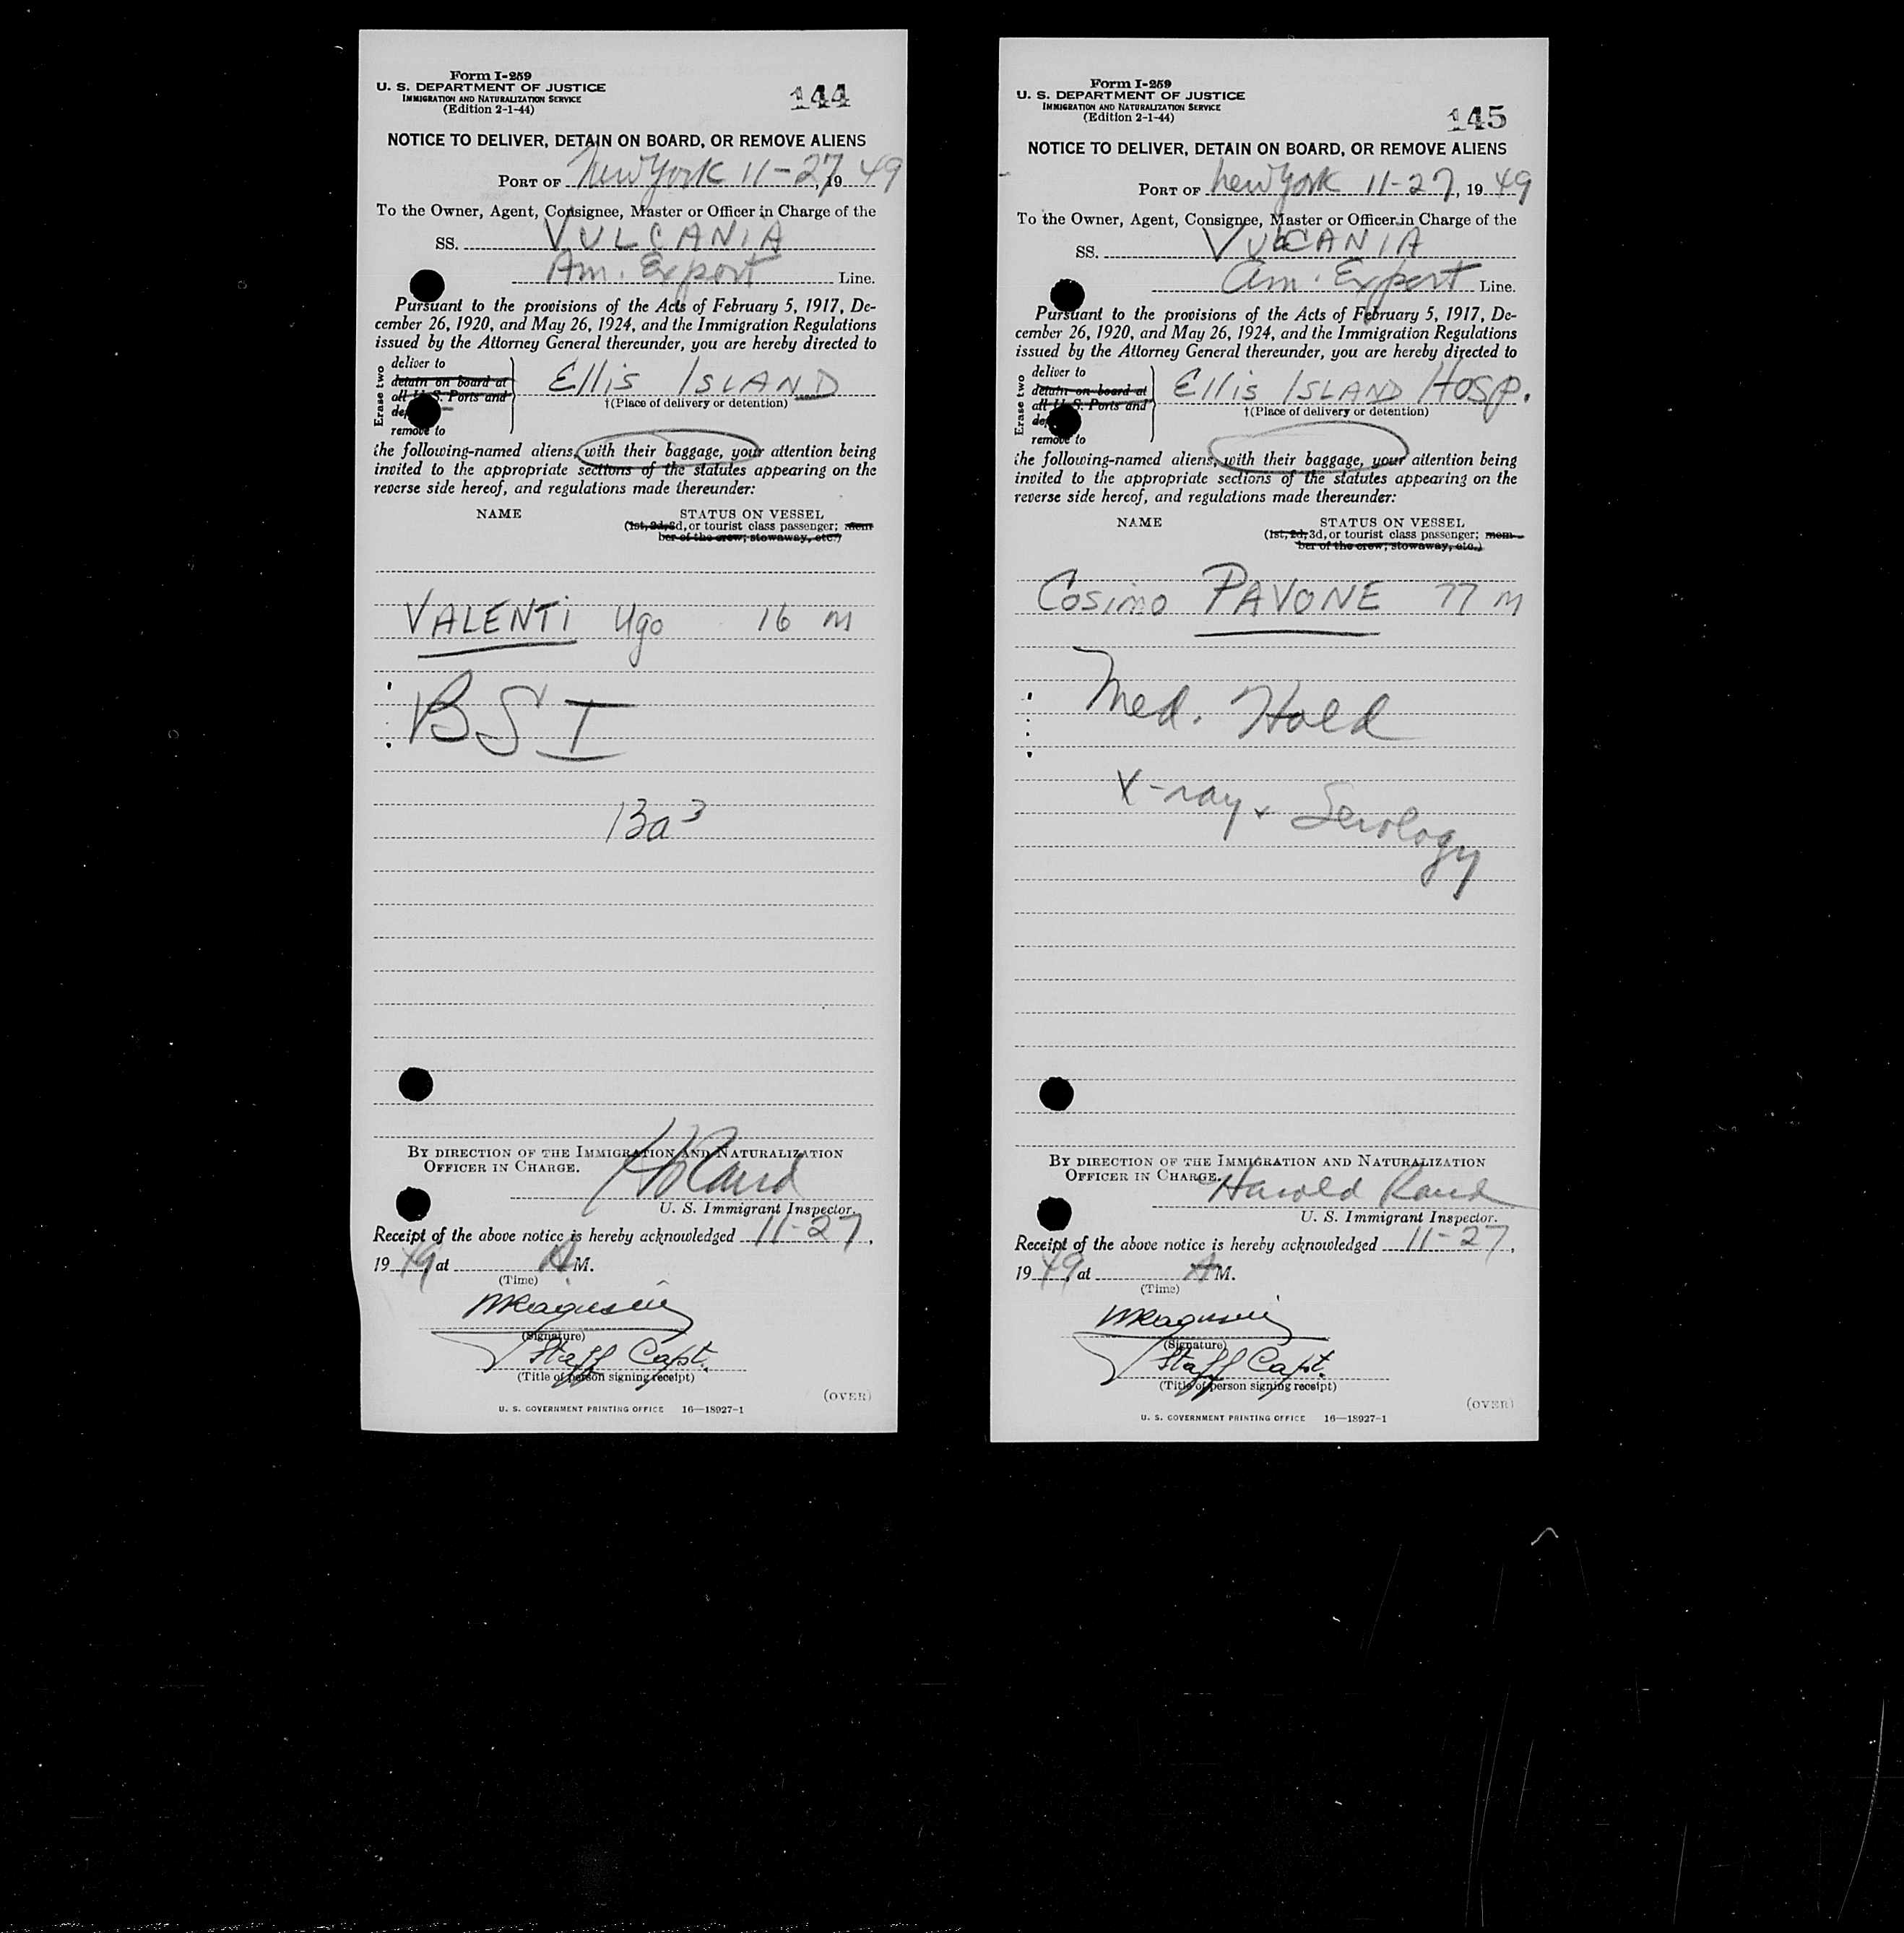 Form I-259
U. S. DEPARTMENT OF JUSTICE
IMMIGRATION AND NATURALIZATION SERVICE
(Edition 2-1-44)
144
NOTICE TO DELIVER, DETAIN ON BOARD, OR REMOVE ALIENS
PORT OF New York 11-27, 19 49
To the Owner, Agent, Consignee, Master or Officer in Charge of the
SS. VULCANIA
Am. Export Line.
Pursuant to the provisions of the Acts of February 5, 1917, De-
cember 26, 1920, and May 26, 1924, and the Immigration Regulations
issued by the Attorney General thereunder, you are hereby directed to
Erase two
deliver to
detain on board at
all U. S. Ports and
remove to
Ellis ISLAND
†(Place of delivery or detention)
the following-named aliens, with their baggage, your attention being
invited to the appropriate sections of the statutes appearing on the
reverse side hereof, and regulations made thereunder:
NAME STATUS ON VESSEL
(1st, 2d, 3d, or tourist class passenger; mem-
ber of the crew; stowaway, etc.)
VALENTI Ugo 16 m
BSI
13a3
BY DIRECTION OF THE IMMIGRATION AND NATURALIZATION
OFFICER IN CHARGE.
U. S. Immigrant Inspector.
Receipt of the above notice is hereby acknowledged 11-27,
19 49, at A M.
(Time)
(Signature)
Staff Capt.
(Title of person signing receipt)
(OVER)
U. S. GOVERNMENT PRINTING OFFICE 16—18927-1
Form I-259
U. S. DEPARTMENT OF JUSTICE
IMMIGRATION AND NATURALIZATION SERVICE
(Edition 2-1-44)
145
NOTICE TO DELIVER, DETAIN ON BOARD, OR REMOVE ALIENS
PORT OF New York 11-27, 19 49
To the Owner, Agent, Consignee, Master or Officer in Charge of the
SS. VULCANIA
Am. Export Line.
Pursuant to the provisions of the Acts of February 5, 1917, De-
cember 26, 1920, and May 26, 1924, and the Immigration Regulations
issued by the Attorney General thereunder, you are hereby directed to
Erase two
deliver to
detain on board at
all U. S. Ports and
remove to
Ellis ISLAND Hosp.
†(Place of delivery or detention)
the following-named aliens, with their baggage, your attention being
invited to the appropriate sections of the statutes appearing on the
reverse side hereof, and regulations made thereunder:
NAME STATUS ON VESSEL
(1st, 2d, 3d, or tourist class passenger; mem-
ber of the crew; stowaway, etc.)
Cosimo PAVONE 77 m
Med. Hold
X-ray + Serology
BY DIRECTION OF THE IMMIGRATION AND NATURALIZATION
OFFICER IN CHARGE.
Harold Rand
U. S. Immigrant Inspector.
Receipt of the above notice is hereby acknowledged 11-27,
19 49, at A M.
(Time)
(Signature)
Staff Capt.
(Title of person signing receipt)
(OVER)
U. S. GOVERNMENT PRINTING OFFICE 16—18927-1